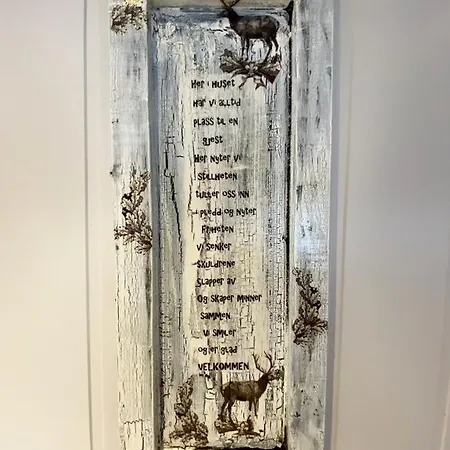 Her i Huset
Har vi alltid
plass til en
gjest
Her nyter vi
stillheten
tuller oss inn
i pledd og nyter
friheten
vi senker
skuldrene
slapper av
og skaper minner
sammen
vi smiler
og er glad
VELKOMMEN